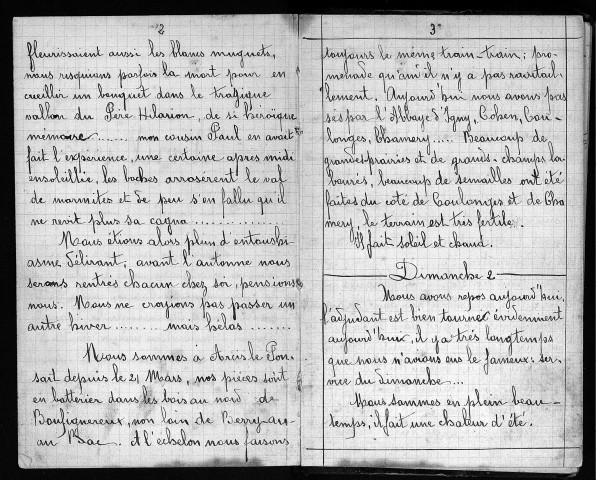 2
fleurissaient aussi les blancs muguets,
nous risquions parfois la mort pour en
cueillir un bouquet dans le tragique
vallon du Père Hilarion, de si héroïque
mémoire........ mon cousin Paul en avait
fait l'expérience, une certaine apres midi
ensoleillée, les boches arrosèrent le val
de marmites et de peu s'en fallu qu'il
ne revit plus sa cagna................
Nous étions alors plein d'entoushi-
asme délirant, avant l'automne nous
serons rentrés chacun chez soi, pensions
nous. Nous ne croyions pas passer un
autre hiver ........ mais helas ........
Nous sommes à Arcis le Pon-
sart depuis le 21 Mars, nos pièces sont
en batterier dans les bois au nord de
Boufignereux, non loin de Berry-au-
au Bac. A l'échelon nous faisons
3
toujours le même train-train; pro-
menade quand il n'y a pas ravitail-
lement. Aujourd'hui nous avons pas
sés par l'Abbaye d'Igny, Cohen, Cou-
longes, Chamery..... Beaucoup de
grandes prairies et de grands champs la-
bourés, beaucoup de semailles ont été
faites du coté de Coulonges et de Cha
mery, le terrain est très fertile.
Il fait soleil et chaud.
Dimanche 2
Nous avons repos aujourd'hui,
l'adjudant est bien tourner évidemment
aujourd'hui, il y a très longtemps
que nous n'avions eus le fameux: ser-
vice du dimanche...
Nous sommes en plein beau-
temps, il fait une chaleur d'été.